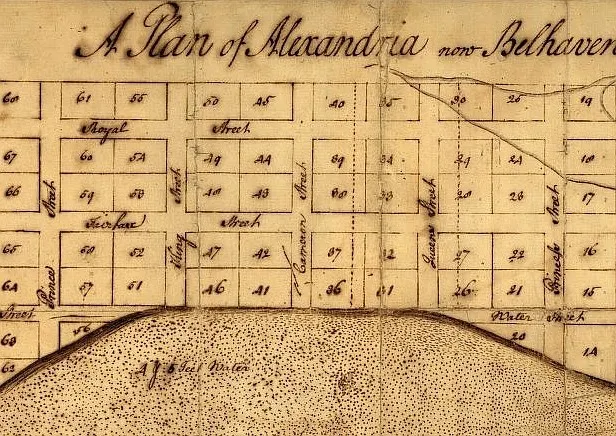 A Plan of Alexandria now Belhaven
60 61 55 50 45 40 35 30 25 19
Royal Street
67 60 54 49 44 39 34 29 24 18
66 59 53 48 43 38 33 28 23 17
Prince Street
King Street
Cameron Street
Queens Street
Princess Street
Fairfax Street
65 58 52 47 42 37 32 27 22 16
64 57 51 46 41 36 31 26 21 15
Street
Water Street
63 56 20 14
62
4 5 feet Water